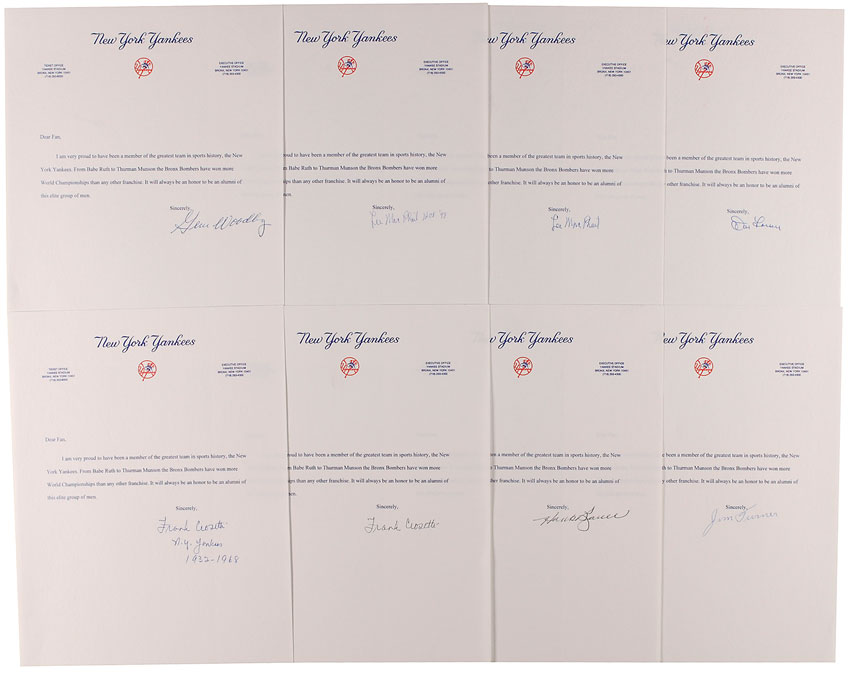 New York Yankees
TICKET OFFICE
YANKEE STADIUM
BRONX, NEW YORK 10451
EXECUTIVE OFFICE
YANKEE STADIUM
BRONX, NEW YORK 10451
Dear Fan,
I am very proud to have been a member of the greatest team in sports history, the New
York Yankees. From Babe Ruth to Thurman Munson the Bronx Bombers have won more
World Championships than any other franchise. It will always be an honor to be an alumni of
this elite group of men.
Sincerely,
Gene Woodling
New York Yankees
EXECUTIVE OFFICE
YANKEE STADIUM
BRONX, NEW YORK 10451
oud to have been a member of the greatest team in sports history, the New
m Babe Ruth to Thurman Munson the Bronx Bombers have won more
ips than any other franchise. It will always be an honor to be an alumni of
men.
Sincerely,
Lee MacPhail HOF '98
w York Yankees
EXECUTIVE OFFICE
YANKEE STADIUM
BRONX, NEW YORK 10451
a member of the greatest team in sports history, the New
Thurman Munson the Bronx Bombers have won more
her franchise. It will always be an honor to be an alumni of
Sincerely,
Lee MacPhail
York Yankees
EXECUTIVE OFFICE
YANKEE STADIUM
BRONX, NEW YORK 10451
ber of the greatest team in sports history, the New
an Munson the Bronx Bombers have won more
chise. It will always be an honor to be an alumni of
Sincerely,
Don Larsen
New York Yankees
TICKET OFFICE
YANKEE STADIUM
BRONX, NEW YORK 10451
EXECUTIVE OFFICE
YANKEE STADIUM
BRONX, NEW YORK 10451
Dear Fan,
I am very proud to have been a member of the greatest team in sports history, the New
York Yankees. From Babe Ruth to Thurman Munson the Bronx Bombers have won more
World Championships than any other franchise. It will always be an honor to be an alumni of
this elite group of men.
Sincerely,
Frank Crosetti
N.Y. Yankees
1932-1968
New York Yankees
EXECUTIVE OFFICE
YANKEE STADIUM
BRONX, NEW YORK 10451
oud to have been a member of the greatest team in sports history, the New
m Babe Ruth to Thurman Munson the Bronx Bombers have won more
ips than any other franchise. It will always be an honor to be an alumni of
men.
Sincerely,
Frank Crosetti
w York Yankees
EXECUTIVE OFFICE
YANKEE STADIUM
BRONX, NEW YORK 10451
a member of the greatest team in sports history, the New
Thurman Munson the Bronx Bombers have won more
her franchise. It will always be an honor to be an alumni of
Sincerely,
Hank Bauer
York Yankees
EXECUTIVE OFFICE
YANKEE STADIUM
BRONX, NEW YORK 10451
ber of the greatest team in sports history, the New
an Munson the Bronx Bombers have won more
chise. It will always be an honor to be an alumni of
Sincerely,
Jim Turner